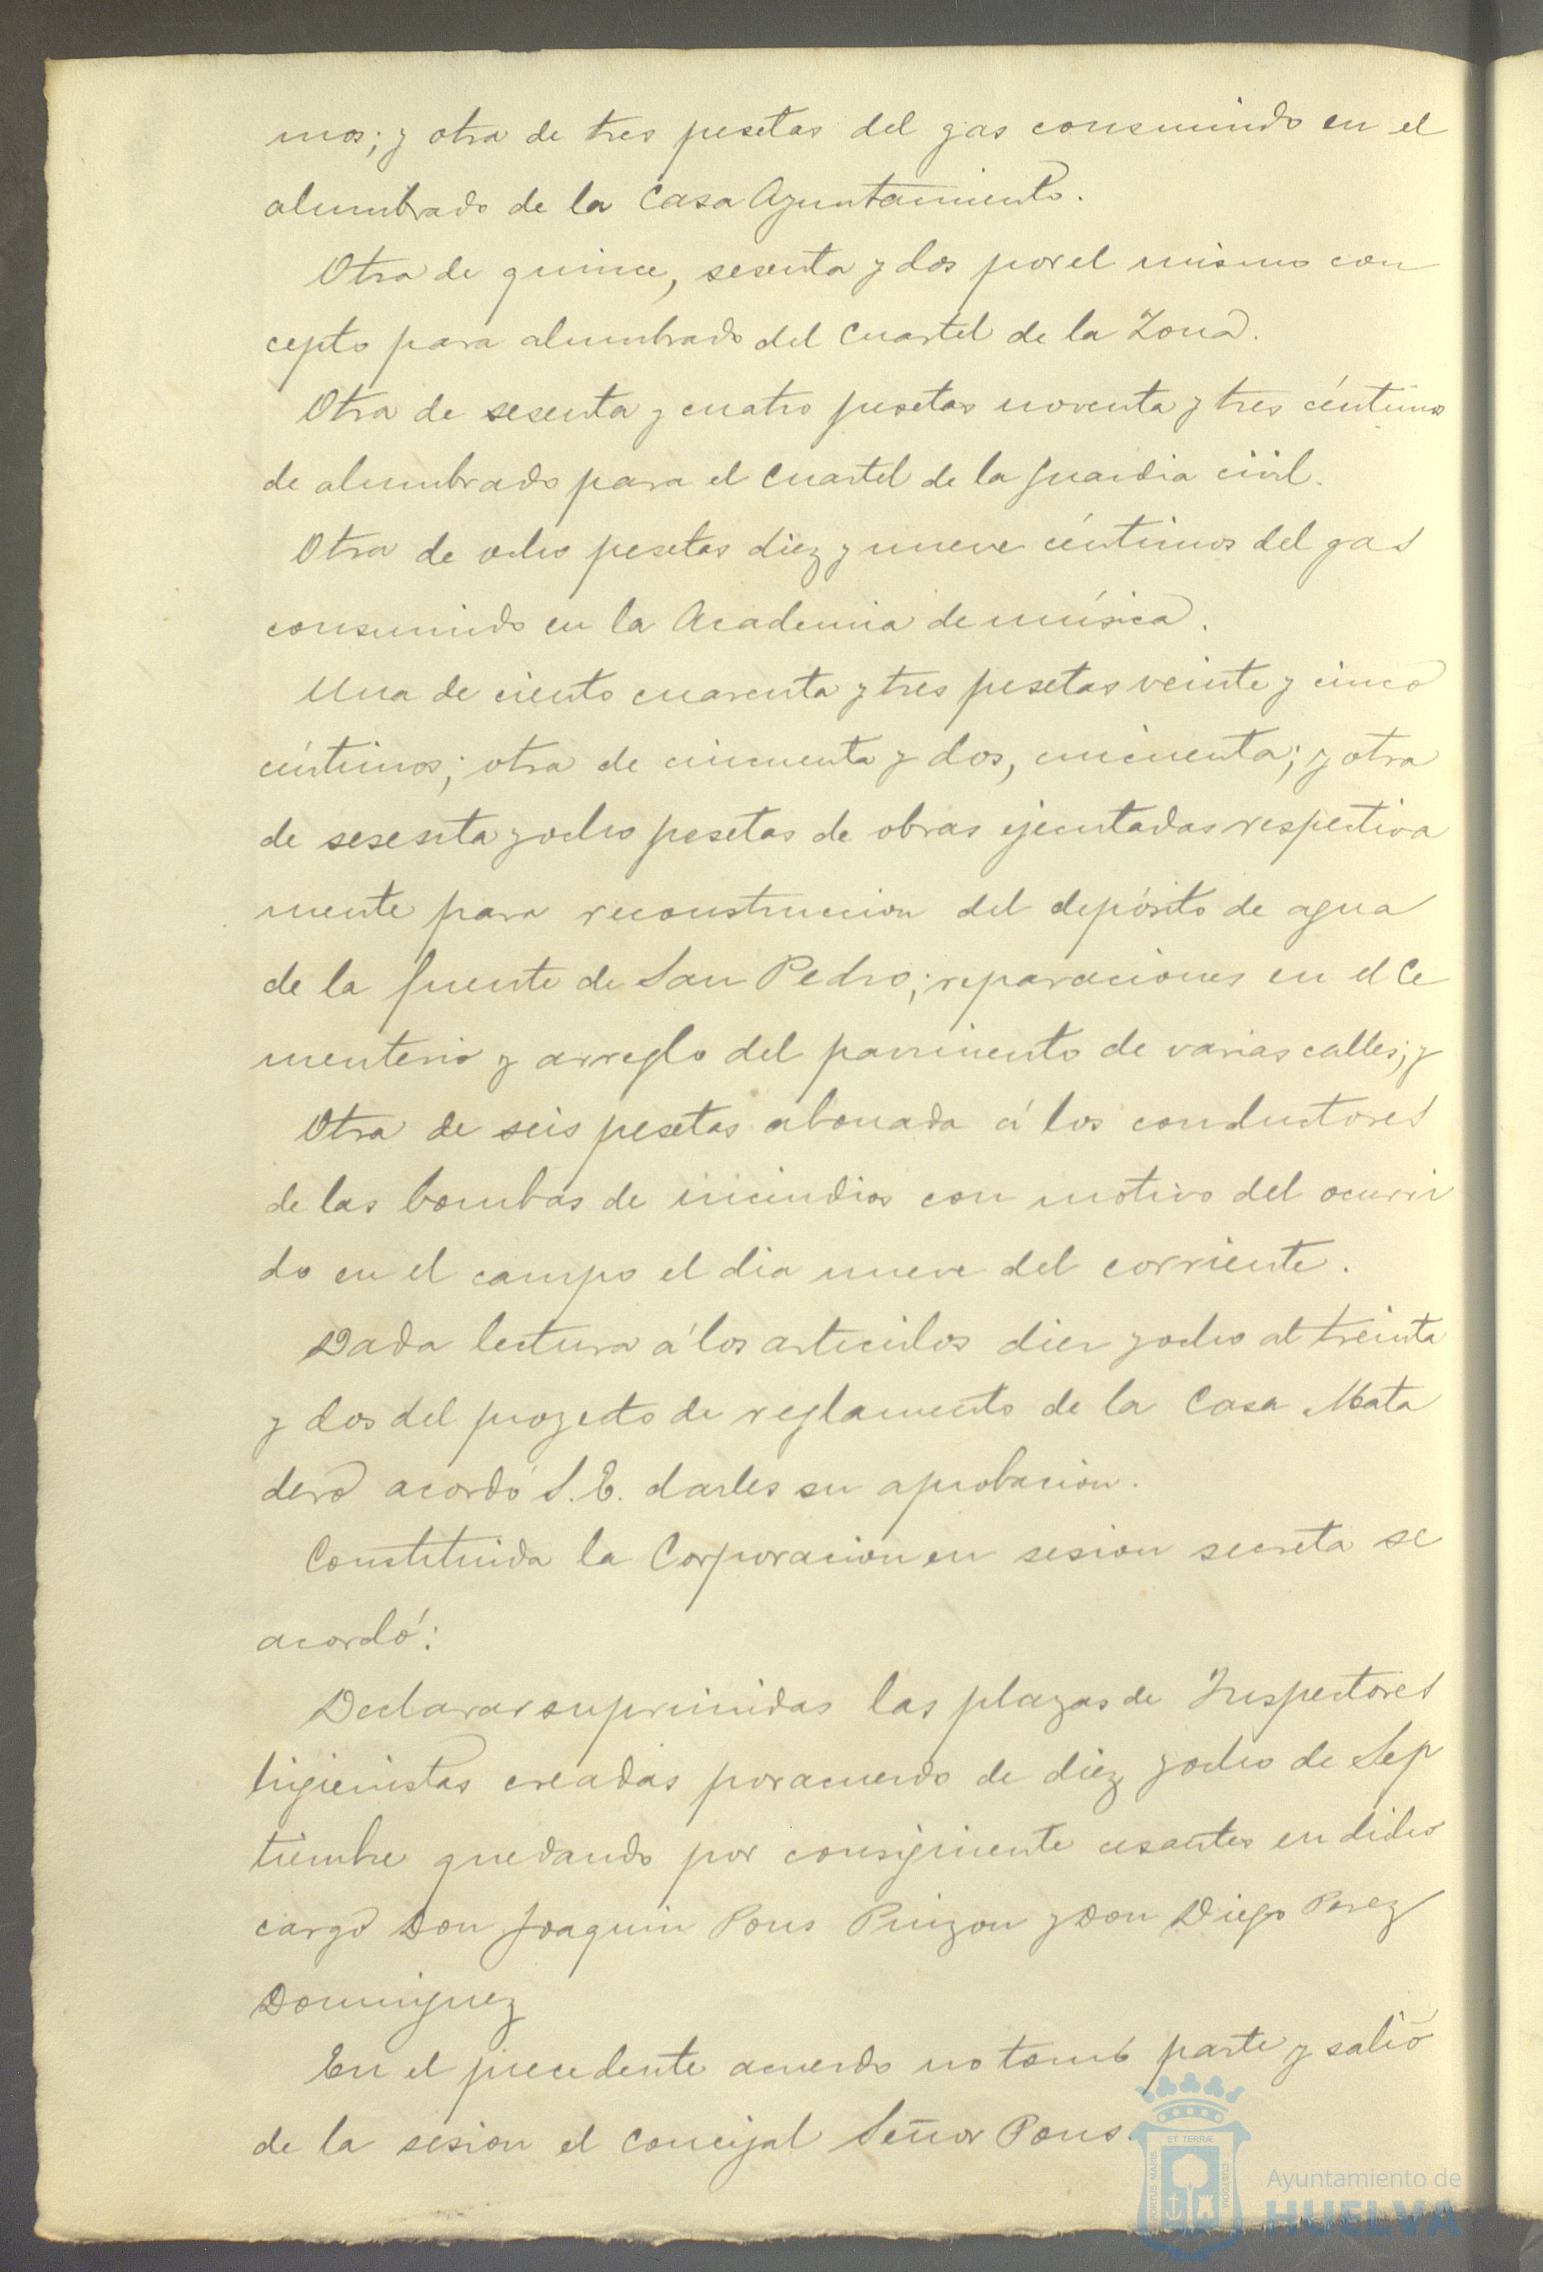 mos; y otra de tres pesetas del gas consumido en el
alumbrado de la Casa Ayuntamiento.
Otra de quince, sesenta y dos por el mismo con
cepto para alumbrado del Cuartel de la Zona.
Otra de sesenta y cuatro pesetas noventa y tres céntimos
de alumbrado para el Cuartel de la Guardia civil.
Otra de ocho pesetas diez y nueve céntimos del gas
consumido en la Academia de música.
Una de ciento cuarenta y tres pesetas veinte y cinco
céntimos; otra de cincuenta y dos, cincuenta; y otra
de sesenta y ocho pesetas de obras ejecutadas respectiva
mente para reconstruccion del depósito de agua
de la fuente de San Pedro; reparaciones en el Ce
menterio y arreglo del pavimento de varias calles; y
Otra de seis pesetas abonada á los conductores
de las bombas de incendios con motivo del ocurri
do en el campo el dia nueve del corriente.
Dada lectura á los articulos diez y ocho al treinta
y dos del proyecto de reglamento de la Casa Mata
dero acordó S. E. darles su aprobacion.
Constituida la Corporacion en sesion secreta se
acordó:
Declarar suprimidas las plazas de Inspectores
higienistas creadas por acuerdo de diez y ocho de Sep
tiembre quedando por consiguiente cesantes en dicho
cargo Don Joaquin Pons Pinzon y Don Diego Perez
Dominguez
En el precedente acuerdo no tomó parte y salió
de la sesion el concejal Señor Pons.
PORTUS MARIS
ET TERRÆ
CUSTODIA
Ayuntamiento de
HUELVA